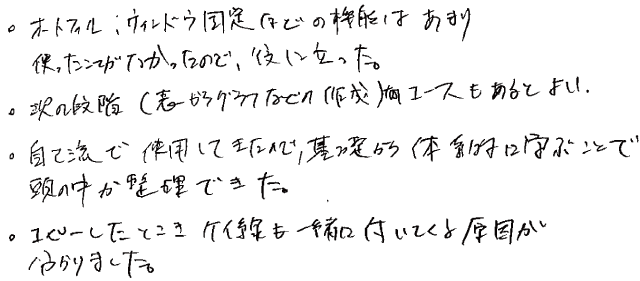 。オートフィル；ウィンドウ固定などの機能はあまり
使ったことがなかったので、役に立った。
。次の段階（表からグラフなどの作成）のコースもあるとよい.
。自己流で使用してきたので,基礎から体系的に学ぶことで
頭の中が整理できた。
。コピーしたときケイ線も一緒に付いてくる原因が
分かりました。